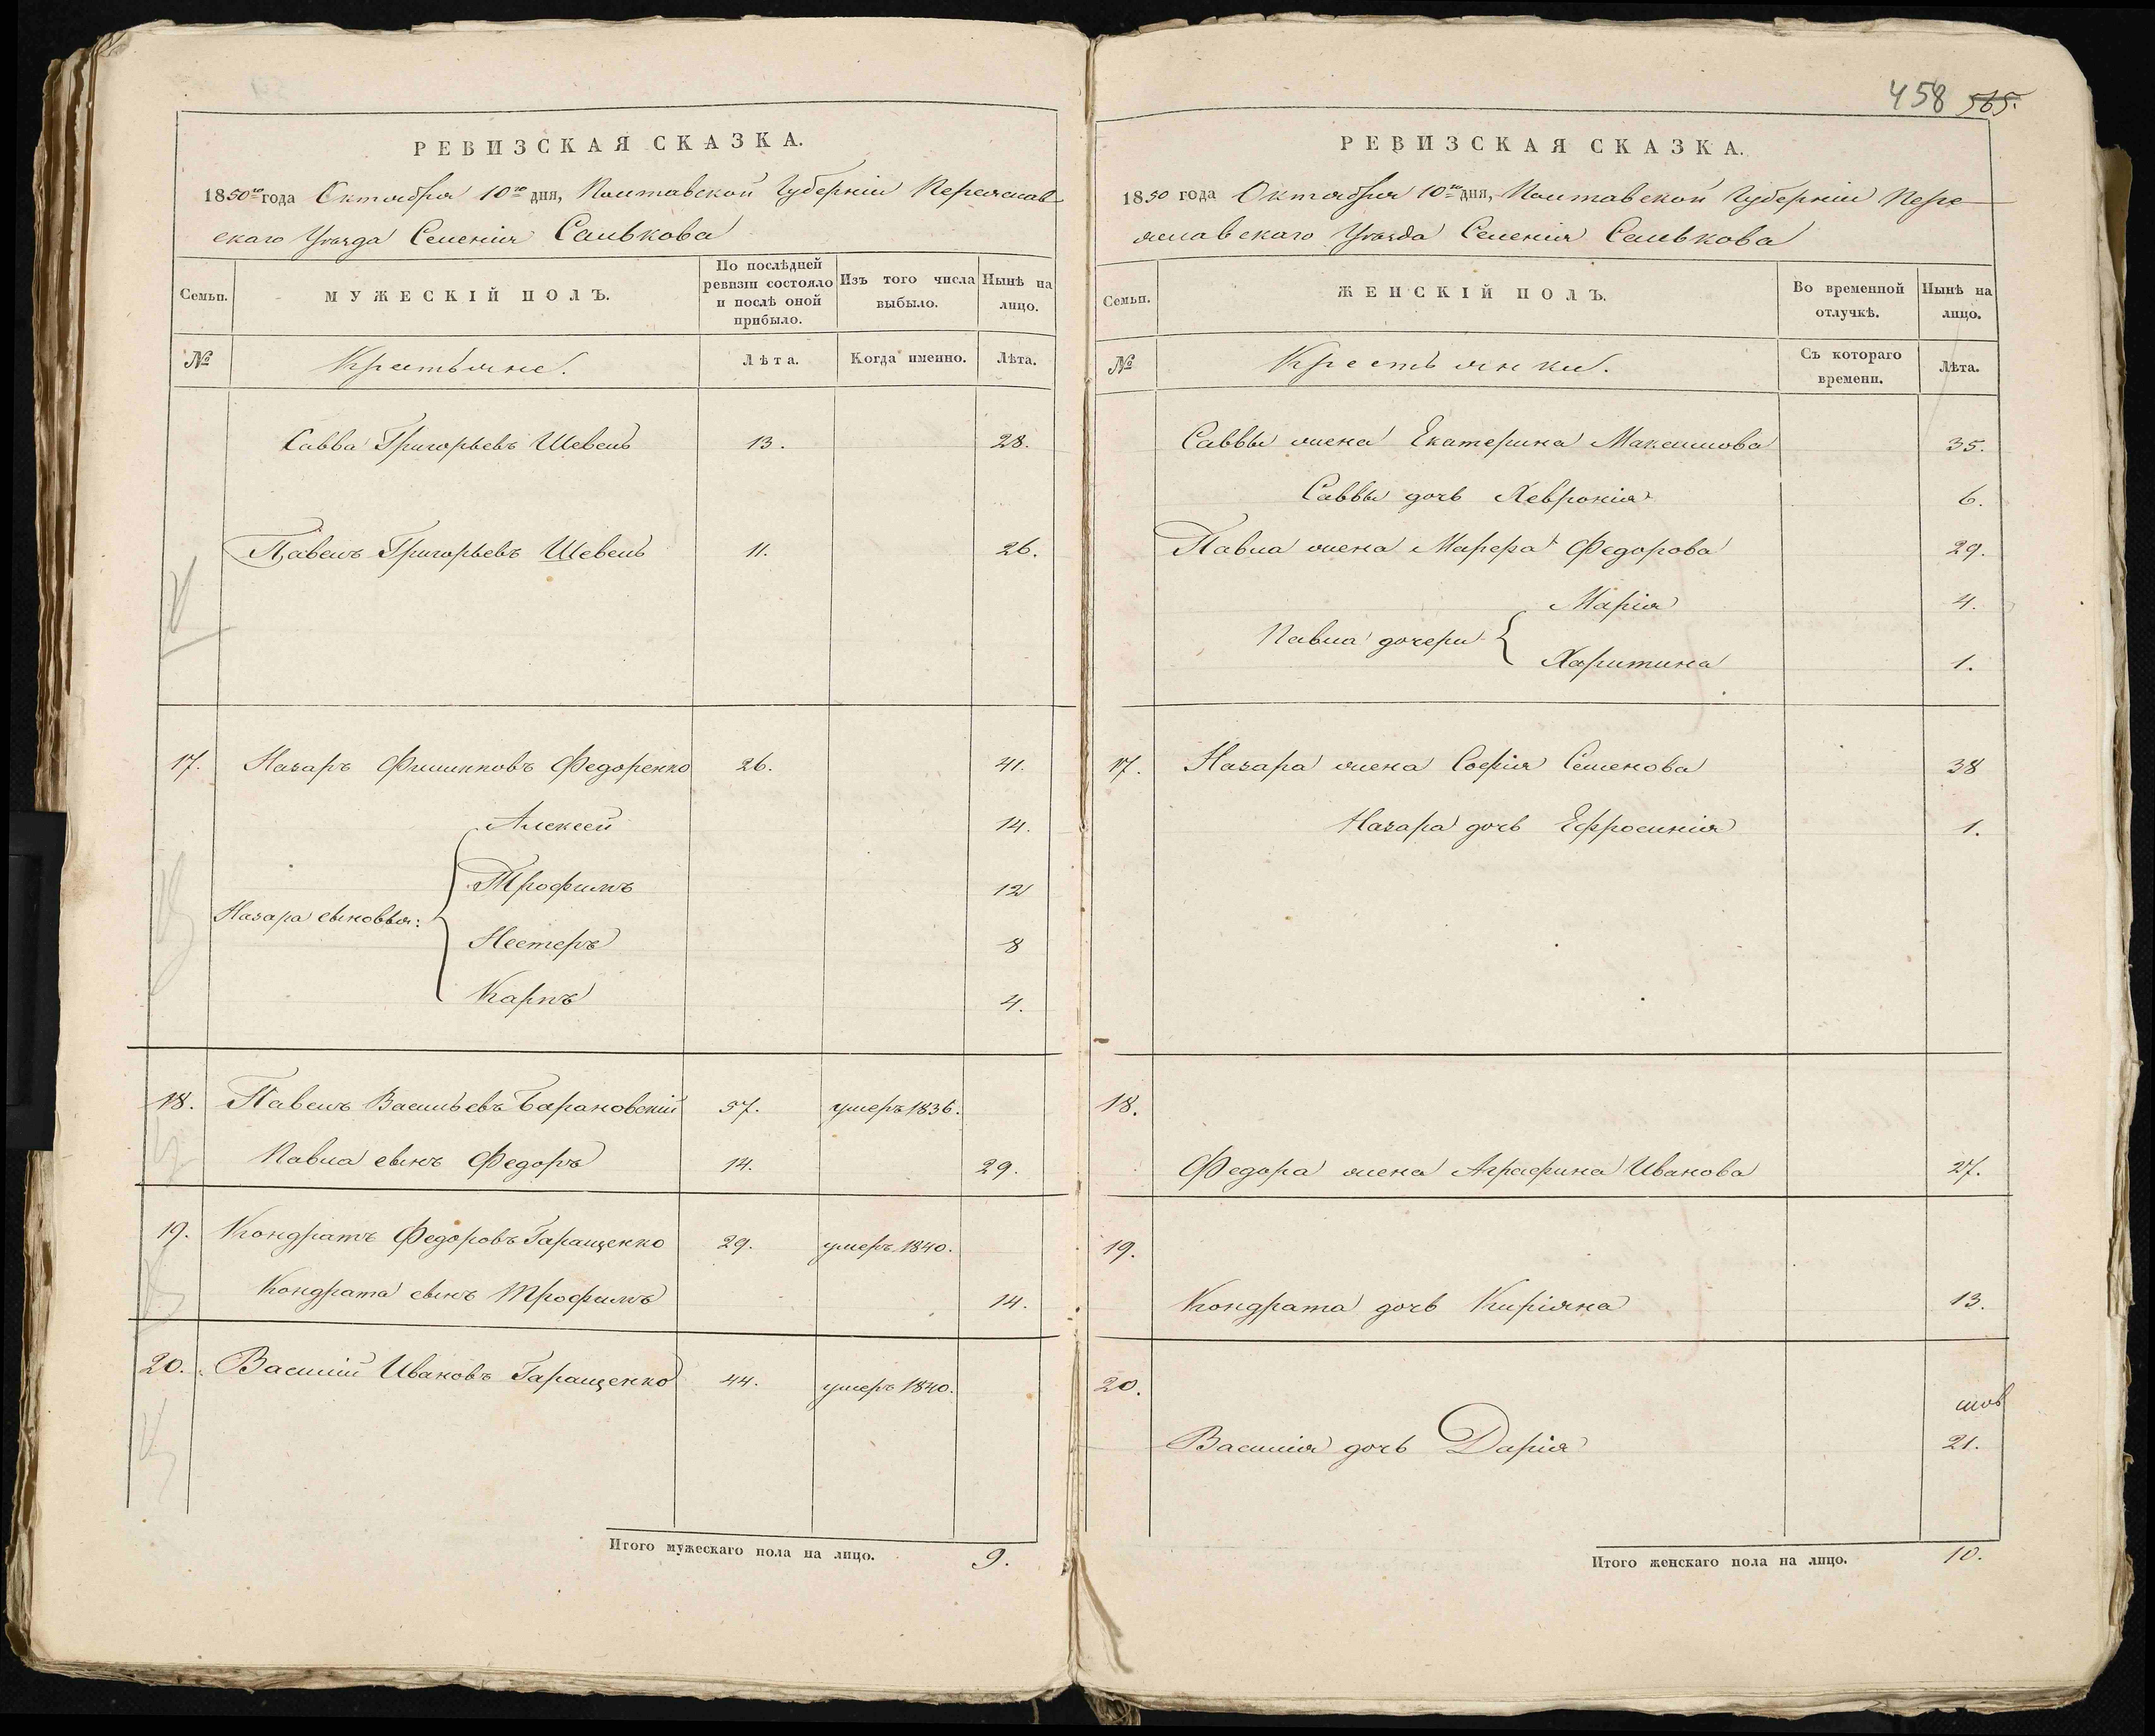 РЕВИЗСКАЯ СКАЗКА.
1850го года Октября 10го дня, Полтавской Губерніи Переяслав-
скаго Уѣзда Селенія Салькова
Семьи.
МУЖЕСКІЙ ПОЛЪ.
По послѣдней ревизіи состояло и послѣ оной прибыло.
Изъ того числа выбыло.
Нынѣ на лицо.
№ Крестьяне. Лѣта. Когда именно. Лѣта.
Савва Григорьевъ Шевель 13. 28.
Павелъ Григорьевъ Шевель 11. 26.
17. Назаръ Филипповъ Федоренко 26. 41.
Алексей 14.
Трофимъ 12
Назара сыновья:
Нестеръ 8
Карпъ 4.
18. Павелъ Васильевъ Барановскій 57. умеръ 1836.
Павла сынъ Федоръ 14. 29.
19. Кондратъ Федоровъ Гаращенко 29. умеръ 1840.
Кондрата сынъ Трофимъ 14.
20. Василій Ивановъ Гаращенко 44. умеръ 1840.
Итого мужескаго пола на лицо. 9.
458 565.
РЕВИЗСКАЯ СКАЗКА.
1850 года Октября 10го дня, Полтавской Губерніи Пере-
яславскаго Уѣзда Селенія Салькова
Семьи.
ЖЕНСКІЙ ПОЛЪ.
Во временной отлучкѣ.
Нынѣ на лицо.
№ Крестьянки. Съ котораго времени. Лѣта.
Саввы жена Екатерина Максимова 35.
Саввы дочь Хевронія 6.
Павла жена Марфа Федорова 29.
Марія 4.
Павла дочери
Харитина 1.
17. Назара жена Софія Семенова 38
Назара дочь Ефросинія 1.
18.
Федора жена Аграфина Иванова 27.
19.
Кондрата дочь Киріяна 13.
20.
Василія дочь Дарія 21.
Итого женскаго пола на лицо. 10.